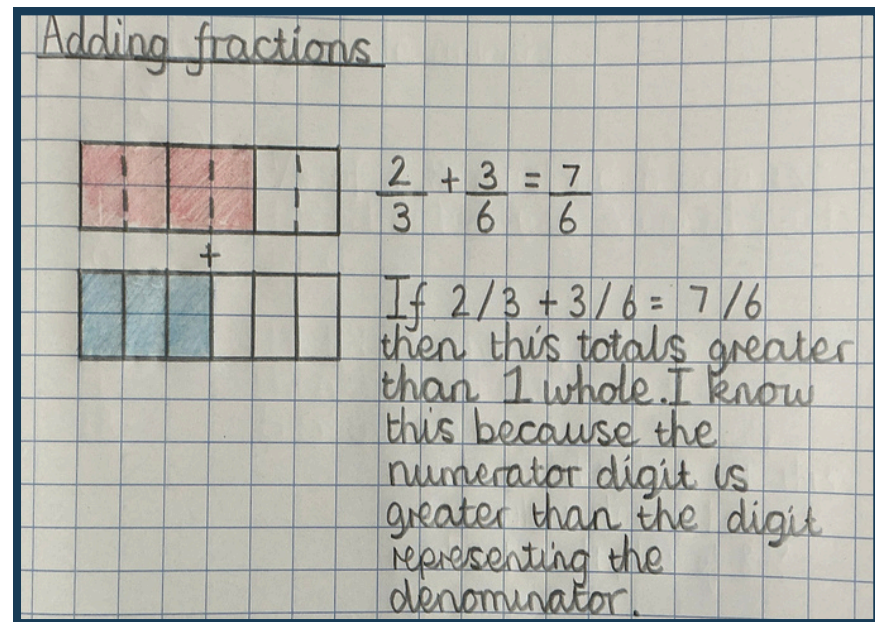 Adding fractions
2/3 + 3/6 = 7/6
+
If 2/3 + 3/6 = 7/6
then this totals greater
than 1 whole. I know
this because the
numerator digit is
greater than the digit
representing the
denominator.